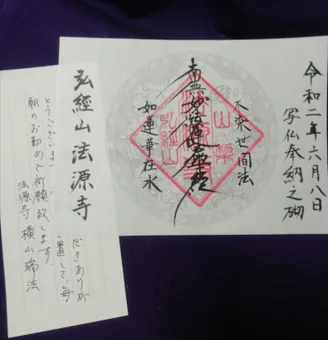 令和二年六月八日
写仏奉納之砌
不染世間法
南無妙法蓮華経
如蓮華在水
弘經山法源寺
だきありが
置して、毎
とうございます
朝のお勤めで祈願致します。
法源寺 横山瑞法